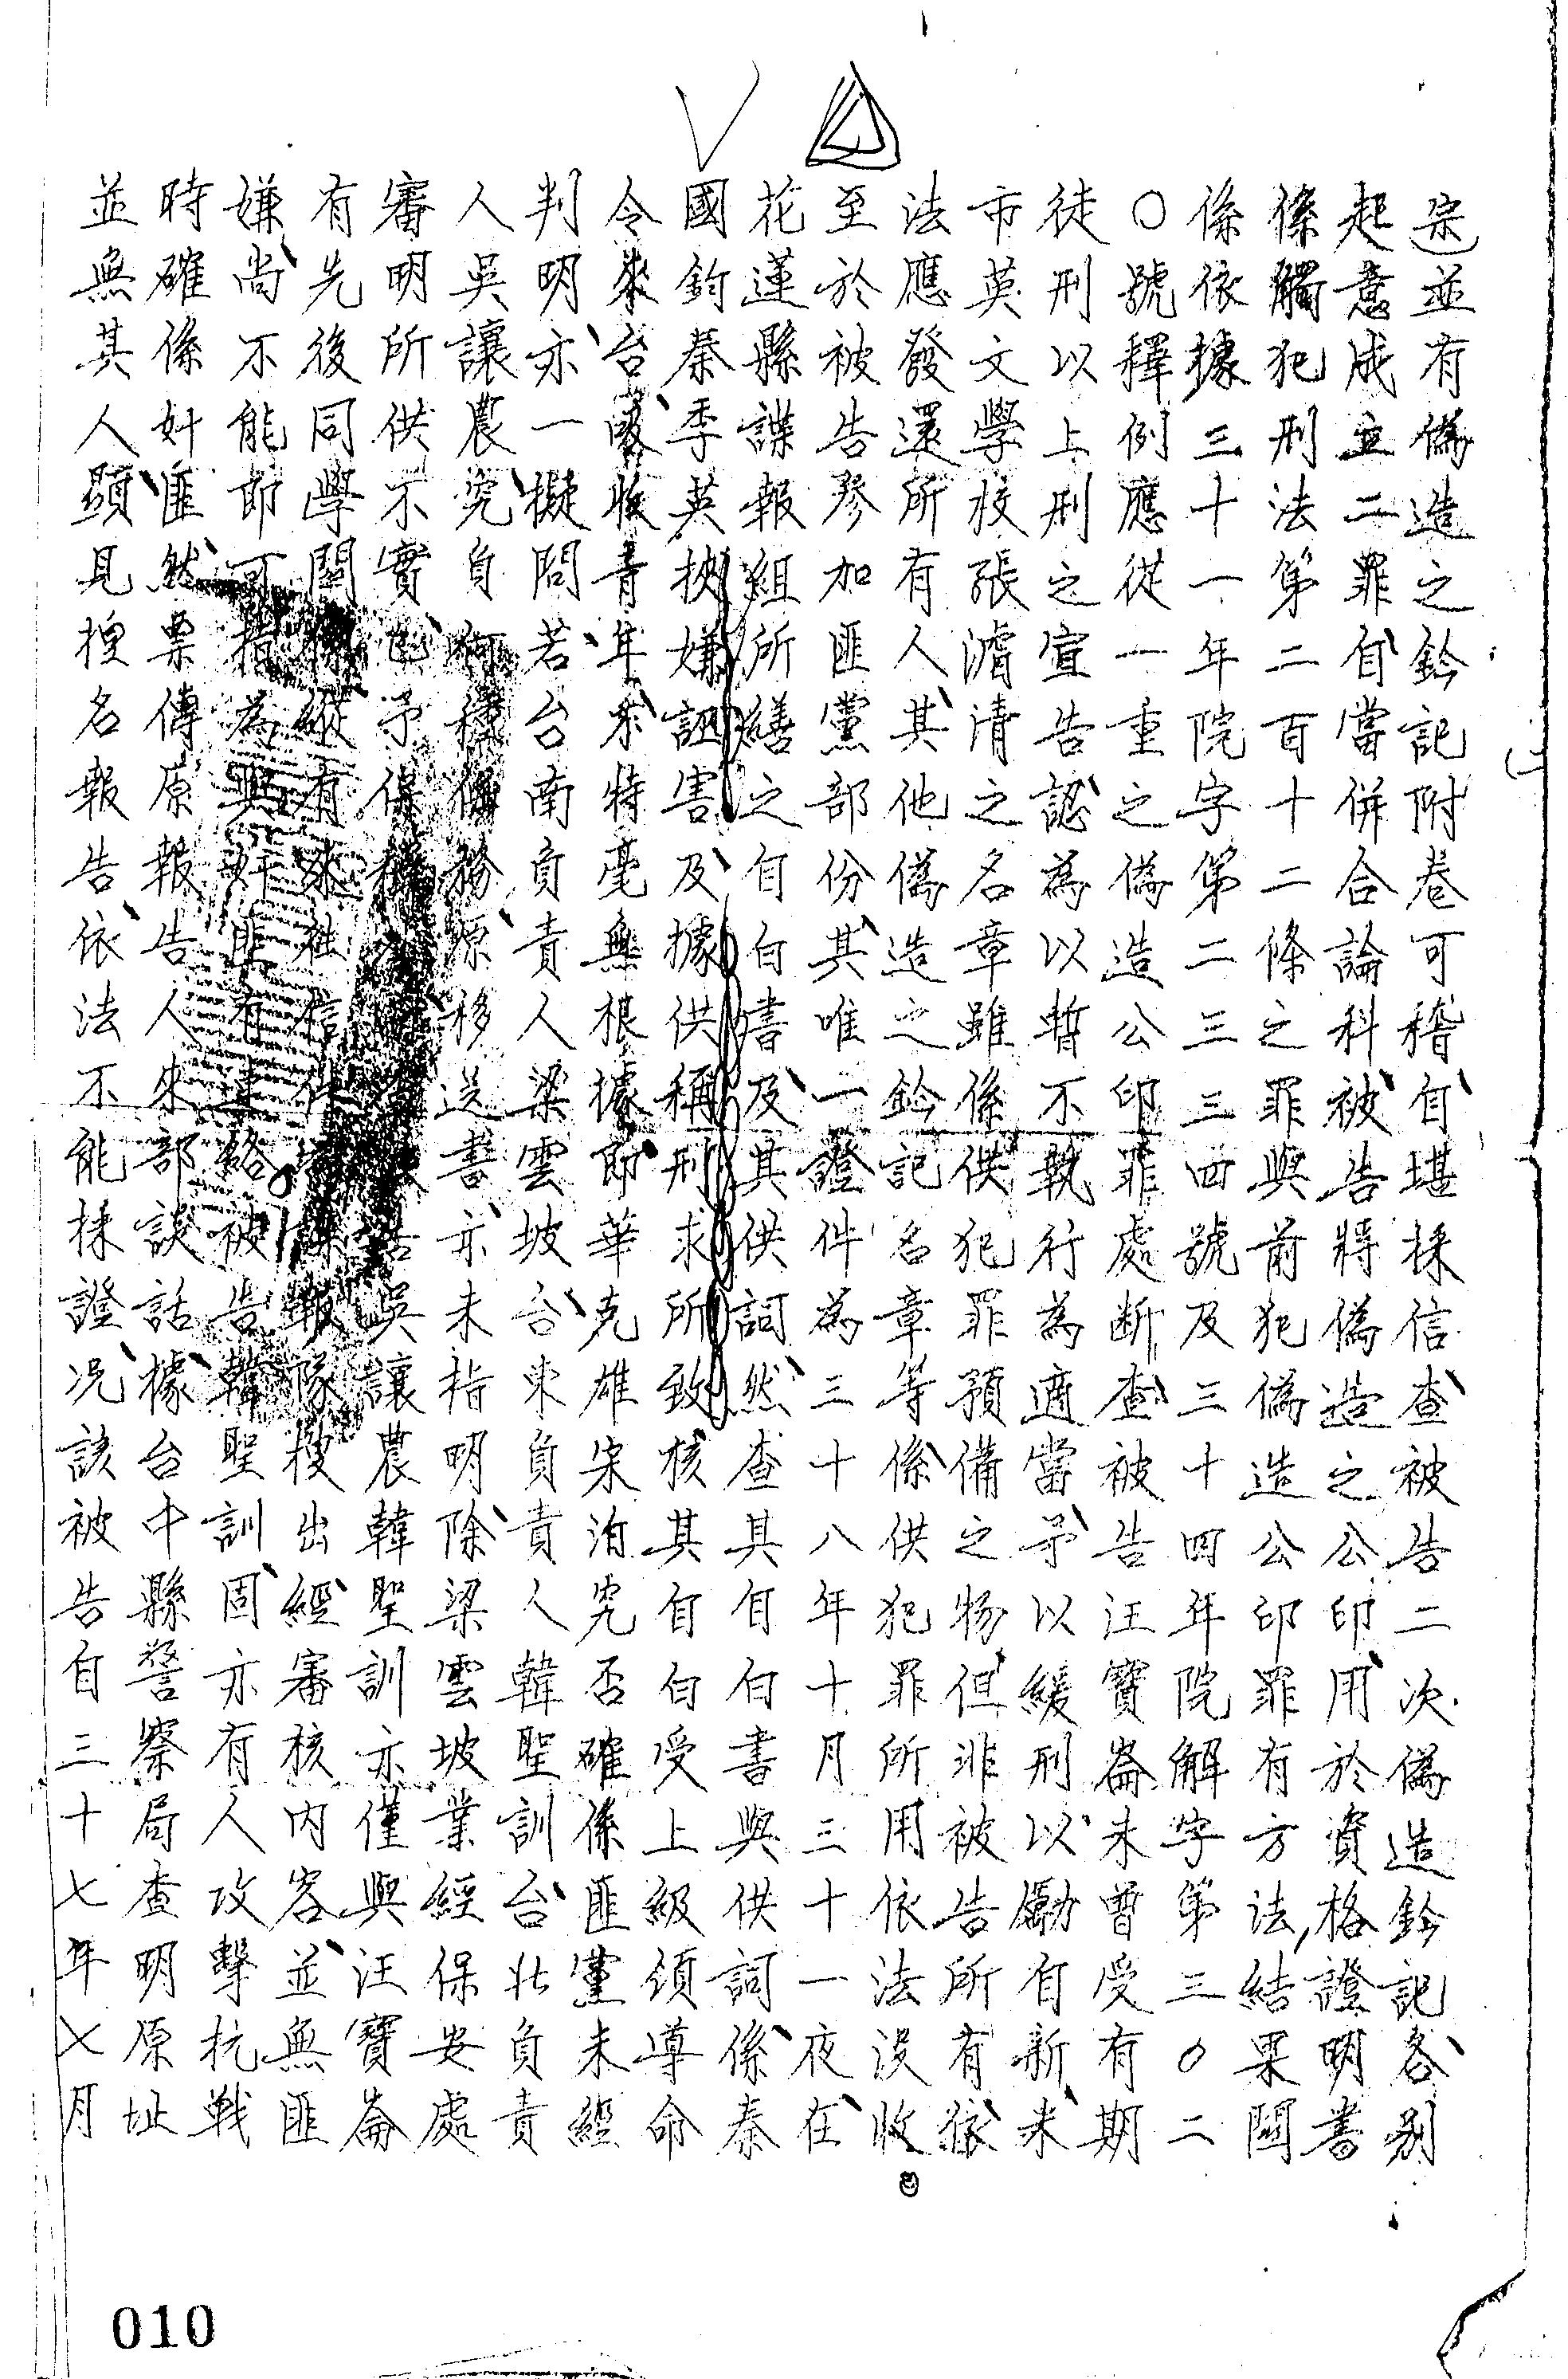 宗並有偽造之鈐記附卷可稽自堪採信查被告二次偽造鈐記各別
起意成立二罪自當併合論科被告將偽造之公印用於資格證明書
係觸犯刑法第二百十二條之罪與前犯偽造公印罪有方法結果關
係依據三十一年院字第二三三四號及三十四年院解字第三〇二
〇號釋例應從一重之偽造公印罪處斷查被告汪寶崙未曾受有期
徒刑以上刑之宣告認為以暫不執行為適當予以緩刑以勵自新來
市英文學校張濬清之名章雖係供犯罪預備之物但非被告所有
法應發還所有人其他偽造之鈐記名章等係供犯罪所用依法沒收
至於被告參加匪黨部份其唯一證件為三十八年十月三十一夜在
花蓮縣諜報組所繕之自白書及其供詞然查其自白書與供詞係秦
國鈞秦季英挾嫌誣害及據供稱刑求所致核其自白受上級領導命
令來台吸收青年來特毫無根據即華克雄宋泊究否確係匪黨未經
判明亦一擬問若台南負責人梁雲坡台東負責人韓聖訓台北負責
人吳讓農究自何移送書亦未指明除梁雲坡業經保安處
審明所供不實予保吳讓農韓聖訓亦僅與汪寶崙
有先後同學關係縱有來往信件諜報隊搜出經審核內容並無匪
嫌尚不能即可指為與奸匪有連絡被告韓聖訓固亦有人攻擊抗戰
時確係奸匪然票傳原報告人來部談話據台中縣警察局查明原址
並無其人顯見捏名報告依法不能採證況該被告自三十七年七月
010